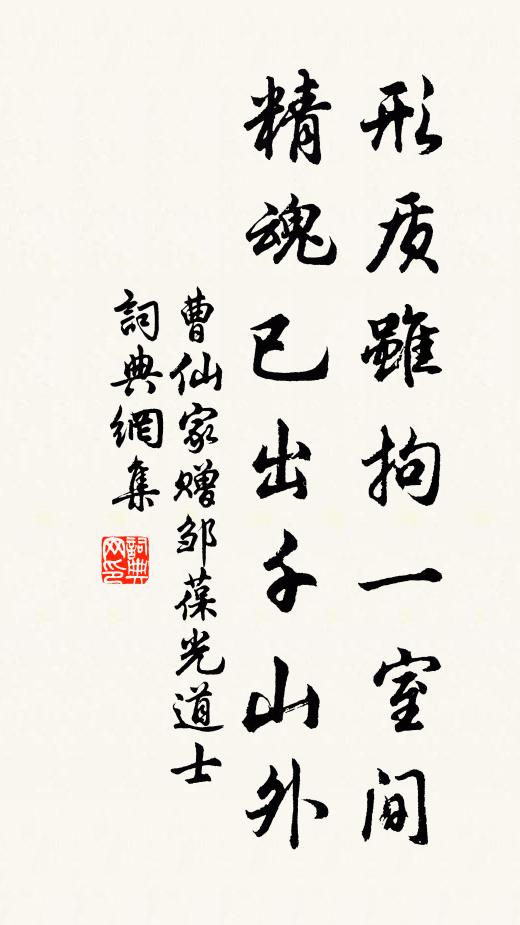 形质雖拘一室间
精魂已出千山外
曹仙家赠邹葆光道士
詞典網集
詞典网印